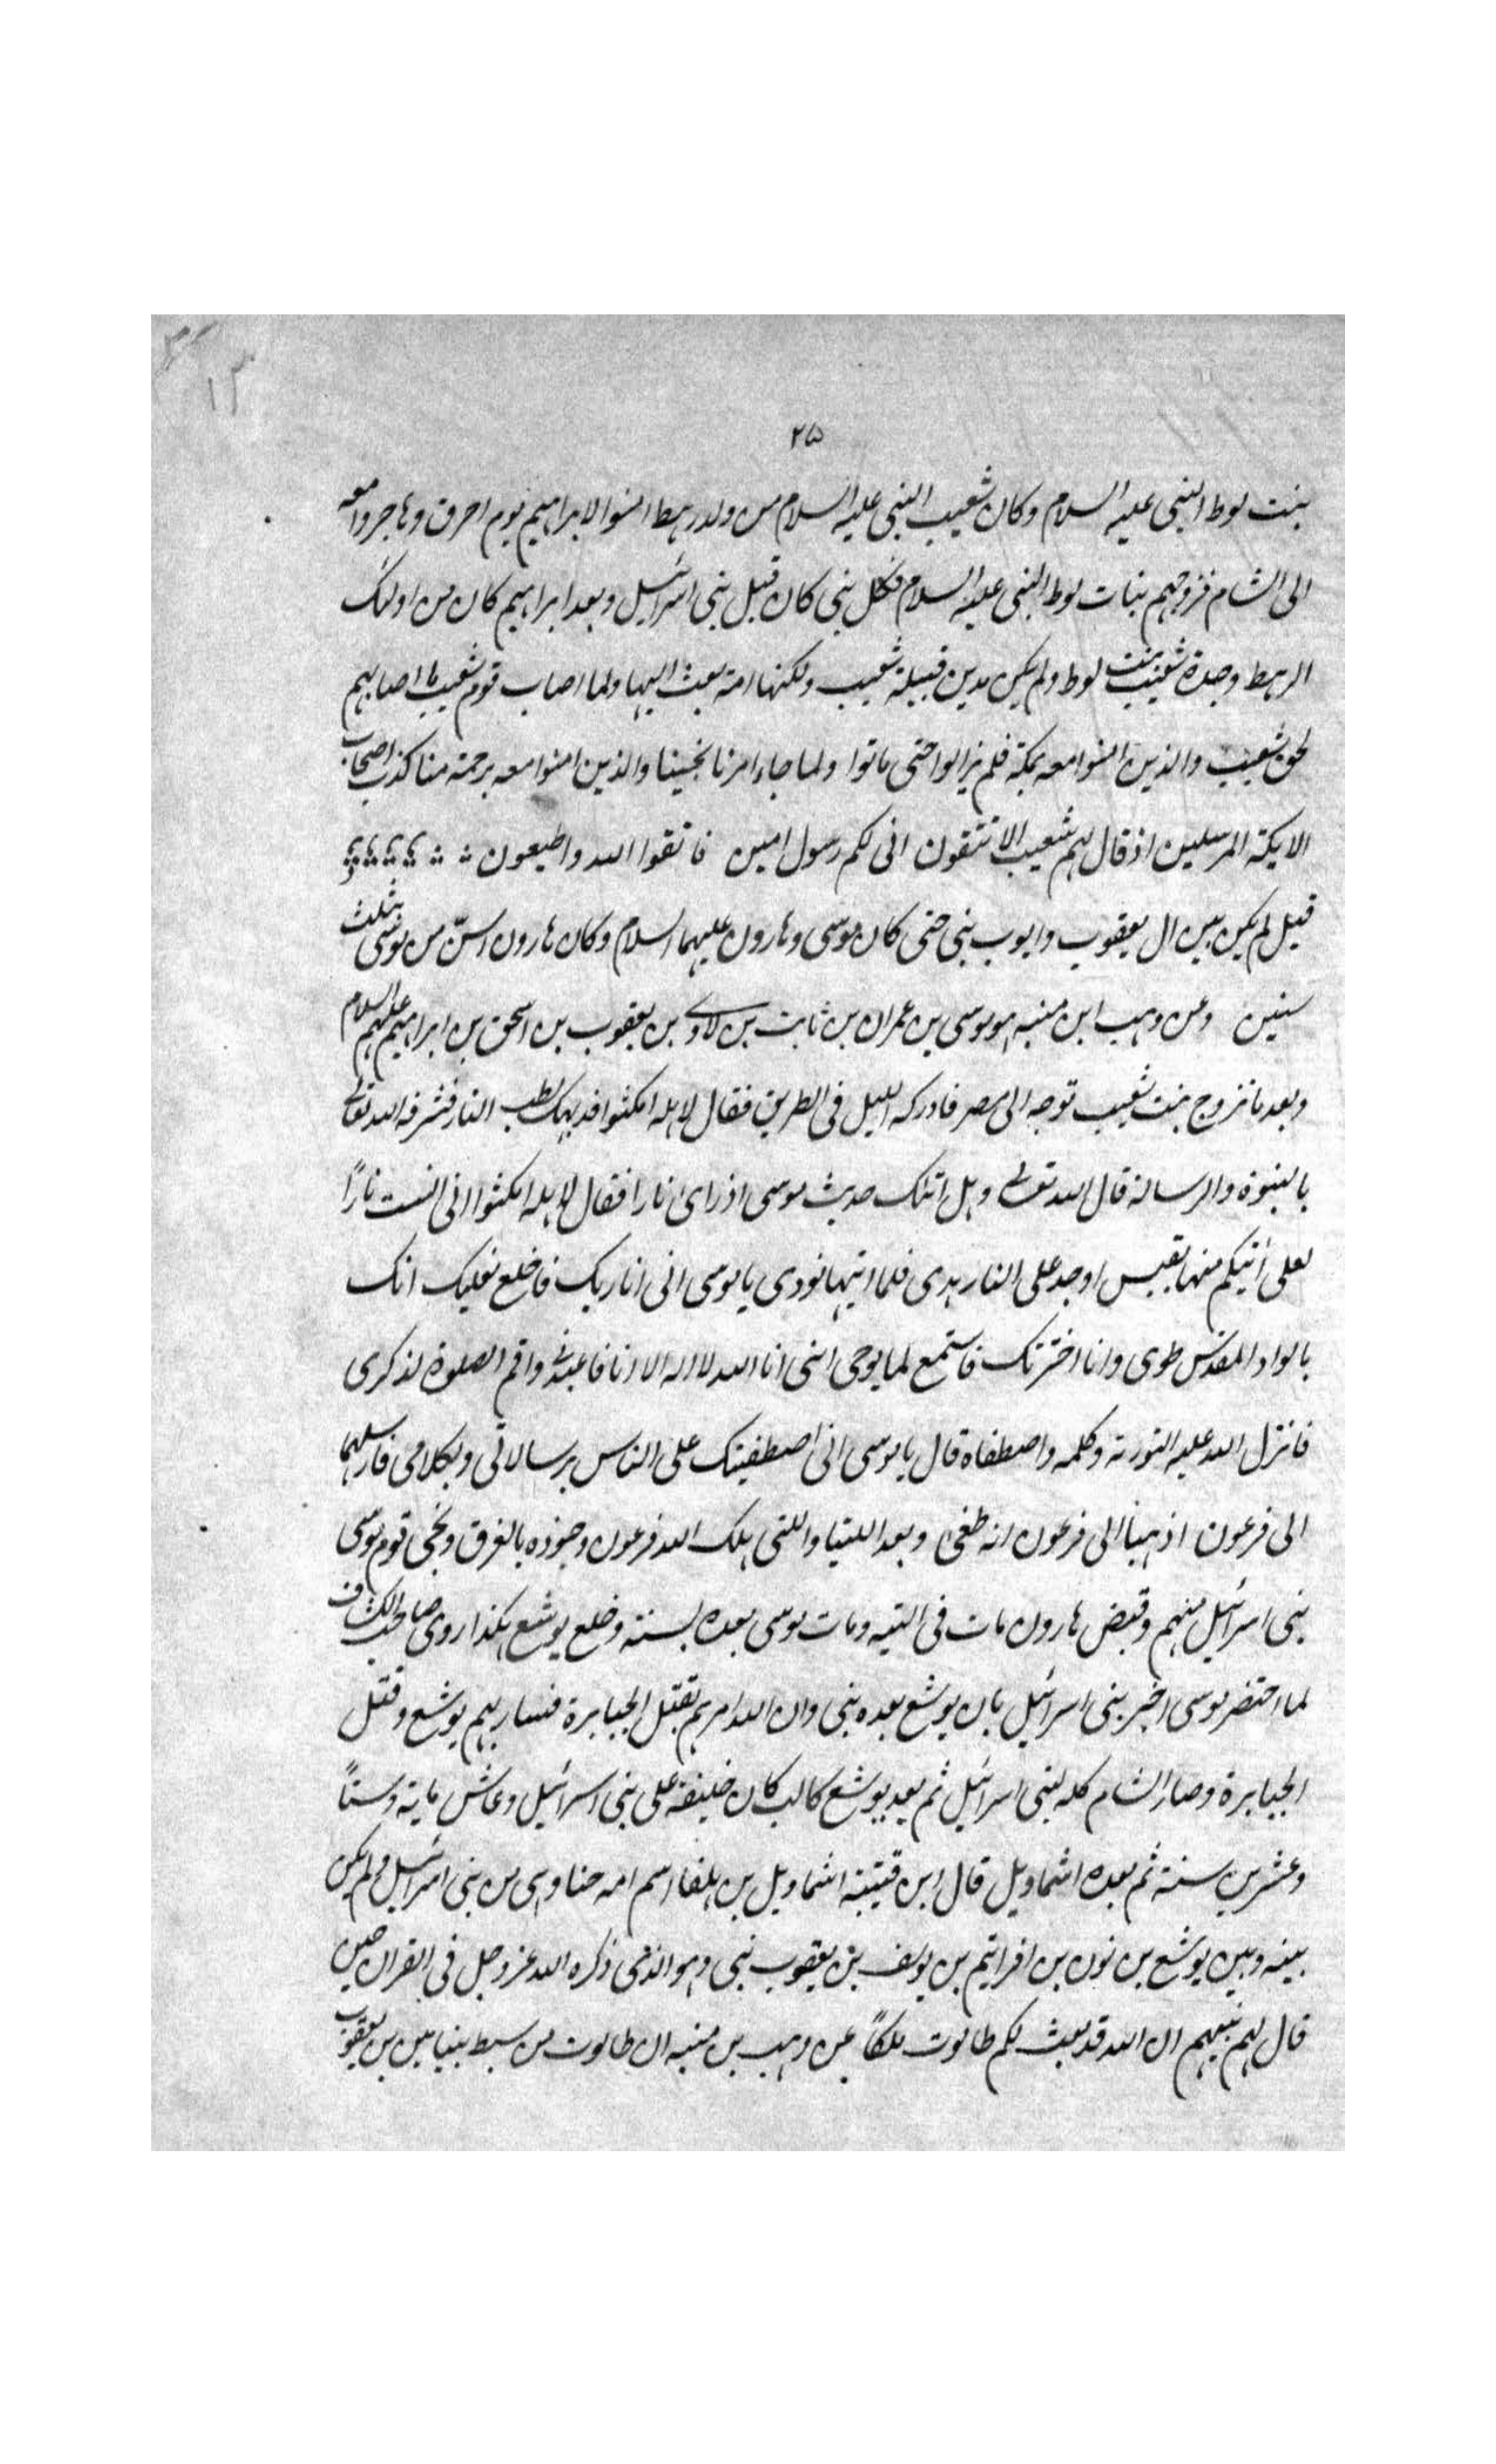 ١٣
٢٥
بنت لوط النبى عليه السلام وكان شعيب النبى عليه السلام من ولد رهط امنوا لابراهيم يوم احرق وهاجروا معه
الى الشام فزوجهم بنات لوط النبى عليه السلام فكل نبى كان قبل بنى اسرائيل وبعد ابراهيم كان من اولئك
الرهط وجدة شعيب بنت لوط ولم يكن مدين قبيلة شعيب ولكنها امة بعث اليها ولما اصاب قوم شعيب ما اصابهم
لحق شعيب والذين امنوا معه بمكة فلم يزالوا حتى ماتوا ولما جاء امرنا نجينا والذين امنوا معه برحمة منا كذب اصحاب
الايكة المرسلين اذ قال لهم شعيب الا تتقون انى لكم رسول امين فاتقوا الله واطيعون
قيل لم يكن بين ال يعقوب وايوب نبى حتى كان موسى وهارون عليهما السلام وكان هارون اسنّ من موسى بثلث
سنين وعن وهب ابن منبه هو موسى بن عمران بن ثابت بن لاوى بن يعقوب بن اسحق بن ابراهيم عليهم السلام
وبعد ما تزوج بنت شعيب توجه الى مصر فادركه الليل فى الطريق فقال لاهله امكثوا فذهب لطلب النار فشرفه الله تعالى
بالنبوة والرسالة قال الله تعالى وهل اتنك حديث موسى اذ راى نارا فقال لاهله امكثوا انى انست نارًا
لعلى اتيكم منها بقبس او اجد على النار هدى فلما اتيها نودى يا موسى انى انا ربك فاخلع نعليك انك
بالواد المقدس طوى وانا اخترتك فاستمع لما يوحى اننى انا الله لا اله الا انا فاعبدنى واقم الصلوة لذكرى
فانزل الله عليه التورية وكلمه واصطفاه قال يا موسى انى اصطفيتك على الناس برسالاتى وبكلامى فارسلهما
الى فرعون اذهبا الى فرعون انه طغى وبعد اللتيا واللتى هلك الله فرعون وجنوده بالغرق ونجى قوم موسى
بنى اسرائيل منهم وقبض هارون مات فى التيه ومات موسى بعده بسنة وخلع يوشع هكذا روى صاحب الكشاف
لما احتضر موسى اخبر بنى اسرائيل بان يوشع بعده نبى وان الله امرهم بقتل الجبابرة فسار بهم يوشع وقتل
الجبابرة وصار الشام كله لبنى اسرائيل ثم بعد يوشع كالب كان خليفة على بنى اسرائيل وعاش ماية وستاً
وعشرين سنة ثم بعده اشماويل قال ابن قتيبة اشماويل بن هلفا اسم امه حنا وهى من بنى اسرائيل ولم يكن
بينه وبين يوشع بن نون بن افرائيم بن يوسف بن يعقوب نبى وهو الذى ذكره الله عز وجل فى القران حين
قال لهم نبيهم ان الله قد بعث لكم طالوت ملكاً عن وهب بن منبه ان طالوت من سبط بنيامين بن يعقوب